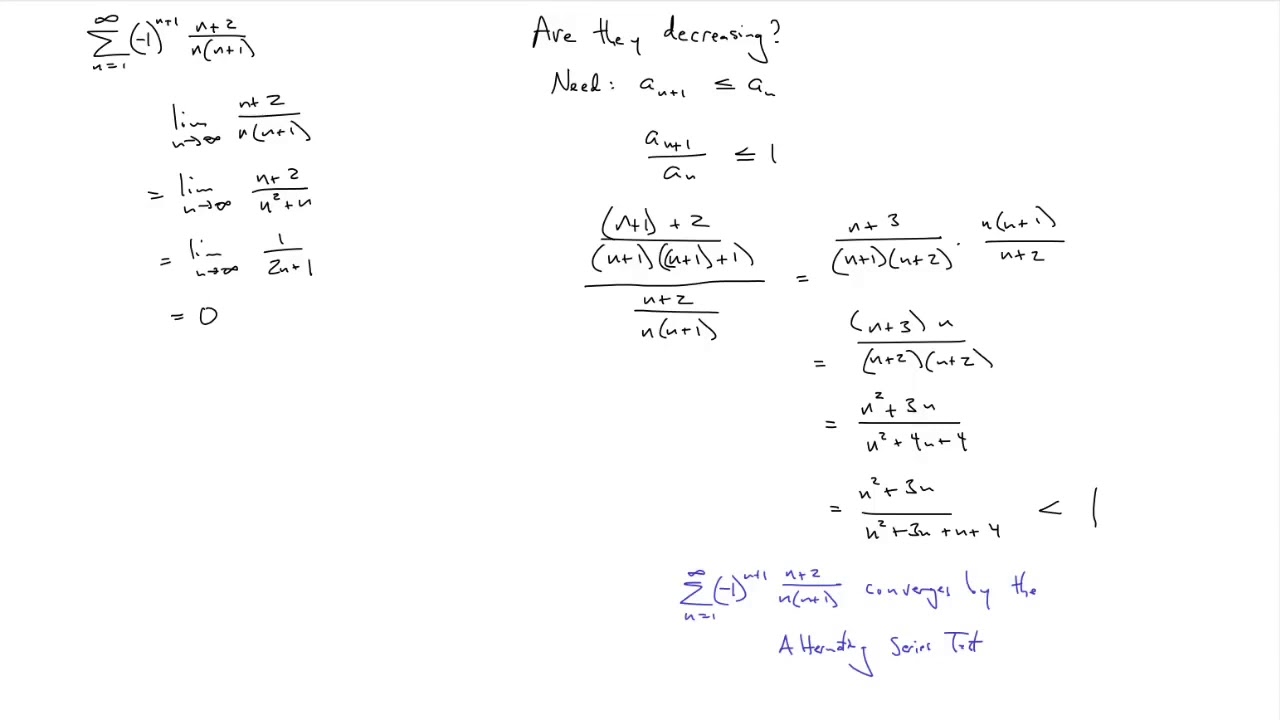 ∑_{n=1}^{∞} (-1)^{n+1} \frac{n+2}{n(n+1)}
lim_{n→∞} \frac{n+2}{n(n+1)}
= lim_{n→∞} \frac{n+2}{n^2+n}
= lim_{n→∞} \frac{1}{2n+1}
= 0
Are they decreasing?
Need: a_{n+1} ≤ a_n
\frac{a_{n+1}}{a_n} ≤ 1
\frac{\frac{(n+1)+2}{(n+1)((n+1)+1)}}{\frac{n+2}{n(n+1)}} = \frac{n+3}{(n+1)(n+2)} · \frac{n(n+1)}{n+2}
= \frac{(n+3)n}{(n+2)(n+2)}
= \frac{n^2+3n}{n^2+4n+4}
= \frac{n^2+3n}{n^2+3n+n+4} < 1
∑_{n=1}^{∞} (-1)^{n+1} \frac{n+2}{n(n+1)} converges by the
Alternating Series Test